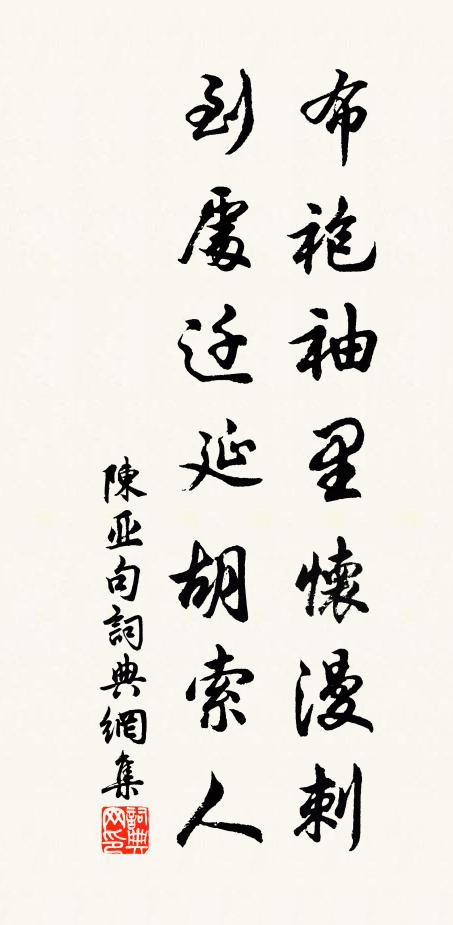 布袍袖里懷漫刺
到處迁延胡索人
陳亚句詞典網集
詞典網印